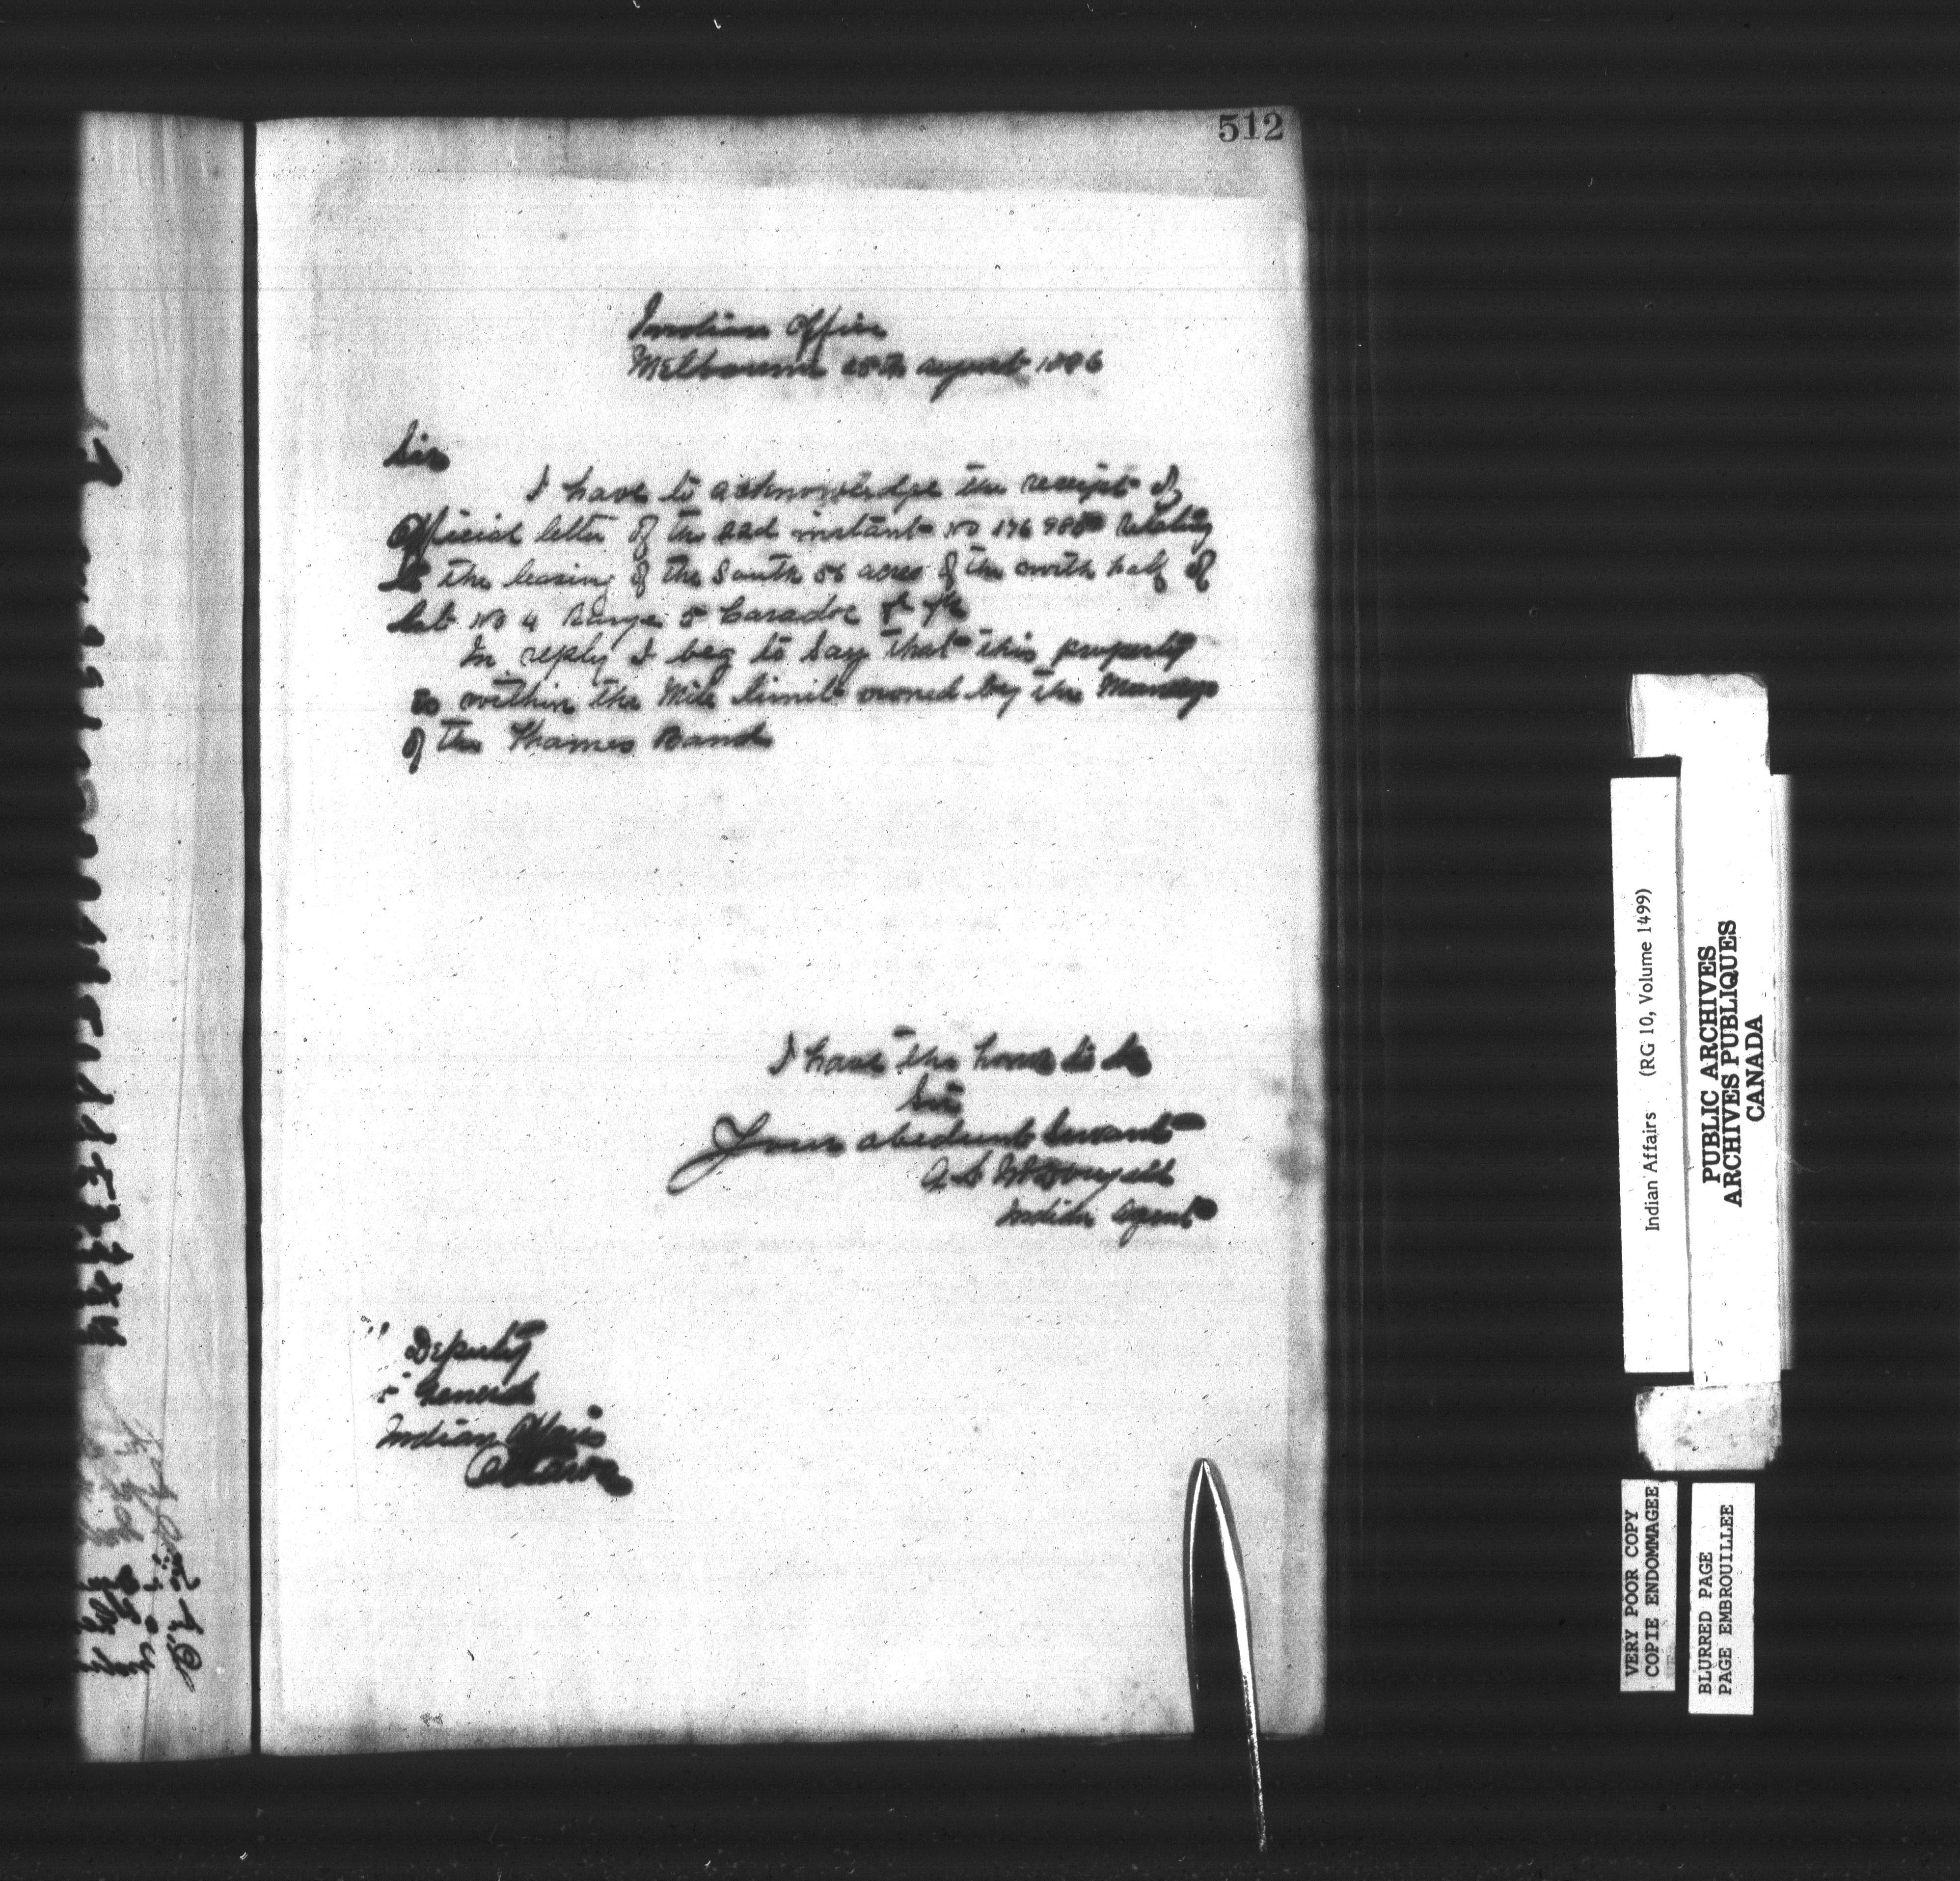 512
Indian Office
Melbourne 25th august 1886
Sir
I have to acknowledge the receipt of
Official letter of the 22d instant No relating
to the leasing of the South 50 acres of the north half of
Lot No 4 Range 5 Caradoc
In reply I beg to Say that this property
is within the Mile limit owned by the Munsey
of the Thames Band
I have the honor to be
Sir
Your obedient Servant
Indian Agent
Deputy
General
Indian Affairs
Ottawa
Indian Affairs (RG 10, Volume 1499)
PUBLIC ARCHIVES
ARCHIVES PUBLIQUES
CANADA
VERY POOR COPY
COPIE ENDOMMAGEE
BLURRED PAGE
PAGE EMBROUILLEE